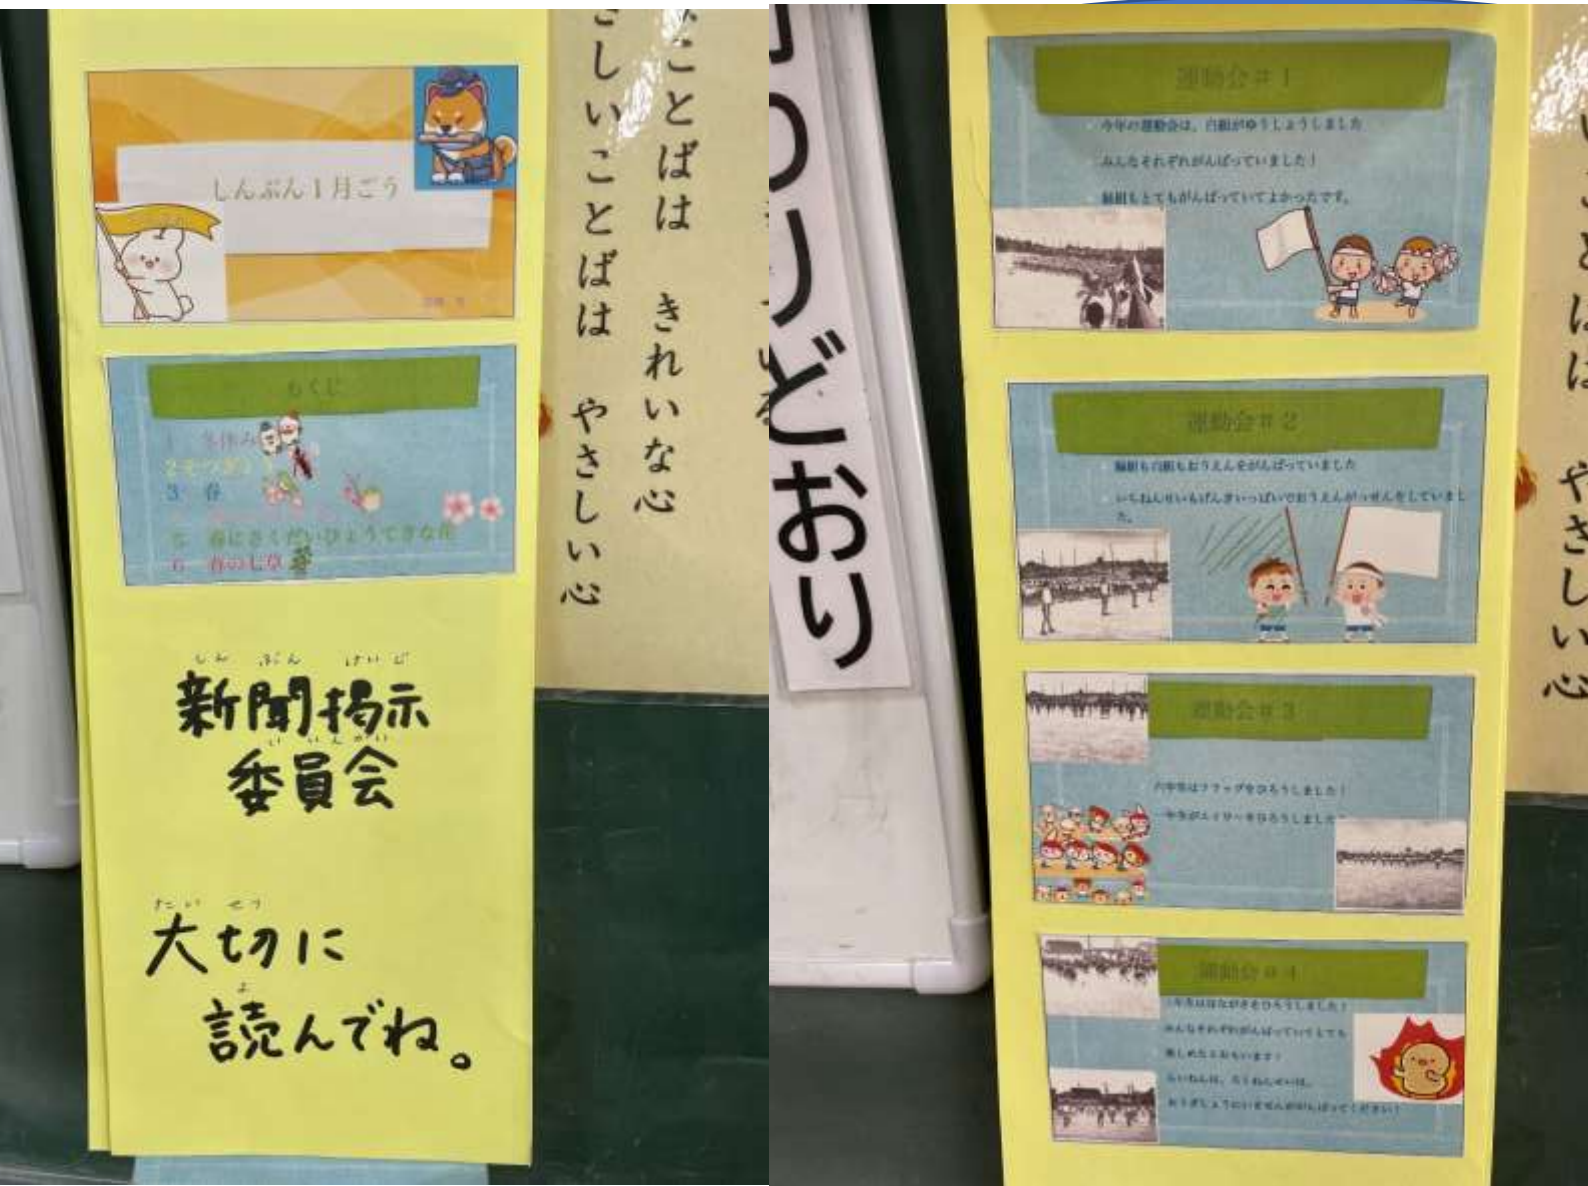 しんぶん1月ごう
もくじ
冬休み
3 春
5 春にさくだいひょうてきな花
6 春の七草
しん ぶん けいじ
新聞掲示
いいんかい
委員会
たいせつ
大切に
よ
読んでね。
ことばは きれいな心
さしいことばは やさしい心
りどおり
運動会#1
今年の運動会は、白組がゆうしょうしました
みんなそれぞれがんばっていました!
緑組もとてもがんばっていてよかったです。
運動会#2
緑組も白組もおうえんをがんばっていました
いちねんせいもげんきいっぱいでおうえんがっせんをしていまし
た。
運動会#3
六年生はフラッグをひろうしました!
運動会#4
みんなそれぞれがんばっていてとても
楽しめたとおもいます!
らいねんは、ろくねんせいは、
やさしい心